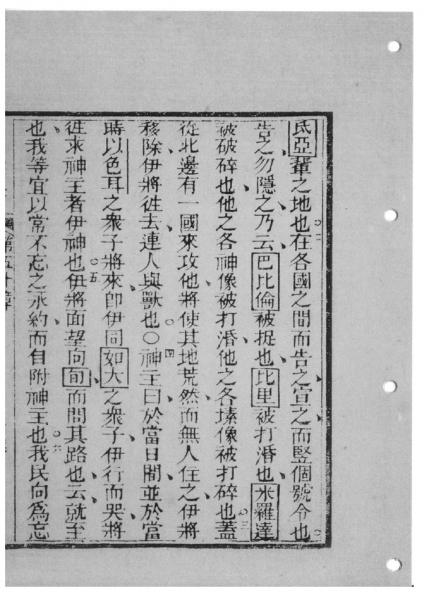 氏亞輩之地也在各國之間而告之宣之而竪個號令也
告之勿隱之乃云巴比倫被捉也比里被打溷也米羅達
被破碎也他之各神像被打溷他之各塐像被打碎也蓋
從北邊有一國來攻他將使其地荒然而無人住之伊將
移除伊將徃去連人與獸也○神主曰於當日間並於當
時以色耳之衆子將來卽伊同如大之衆子伊行而哭將
徃求神主者伊神也伊將面望向旬而問其路也云就至
也我等宜以常不忘之永約而自附神主也我民向爲忘